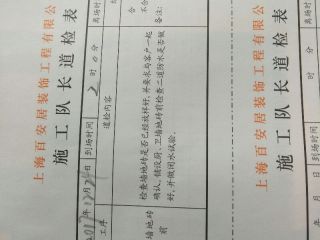 上海百安居装饰工程有限公
施工队长道检表
到场时间 2 时 0 分 离场时
工序 道检内容
墙地砖前
检查墙地砖是否已经放样好,并要求与客户一起
确认,铺设厨、卫墙地砖前检查二道防水是否做
好,并做闭水试验。
备注:
上海百安居装饰工程有限公
施工队长道检表
月 日 到场时间 时 分 离场时